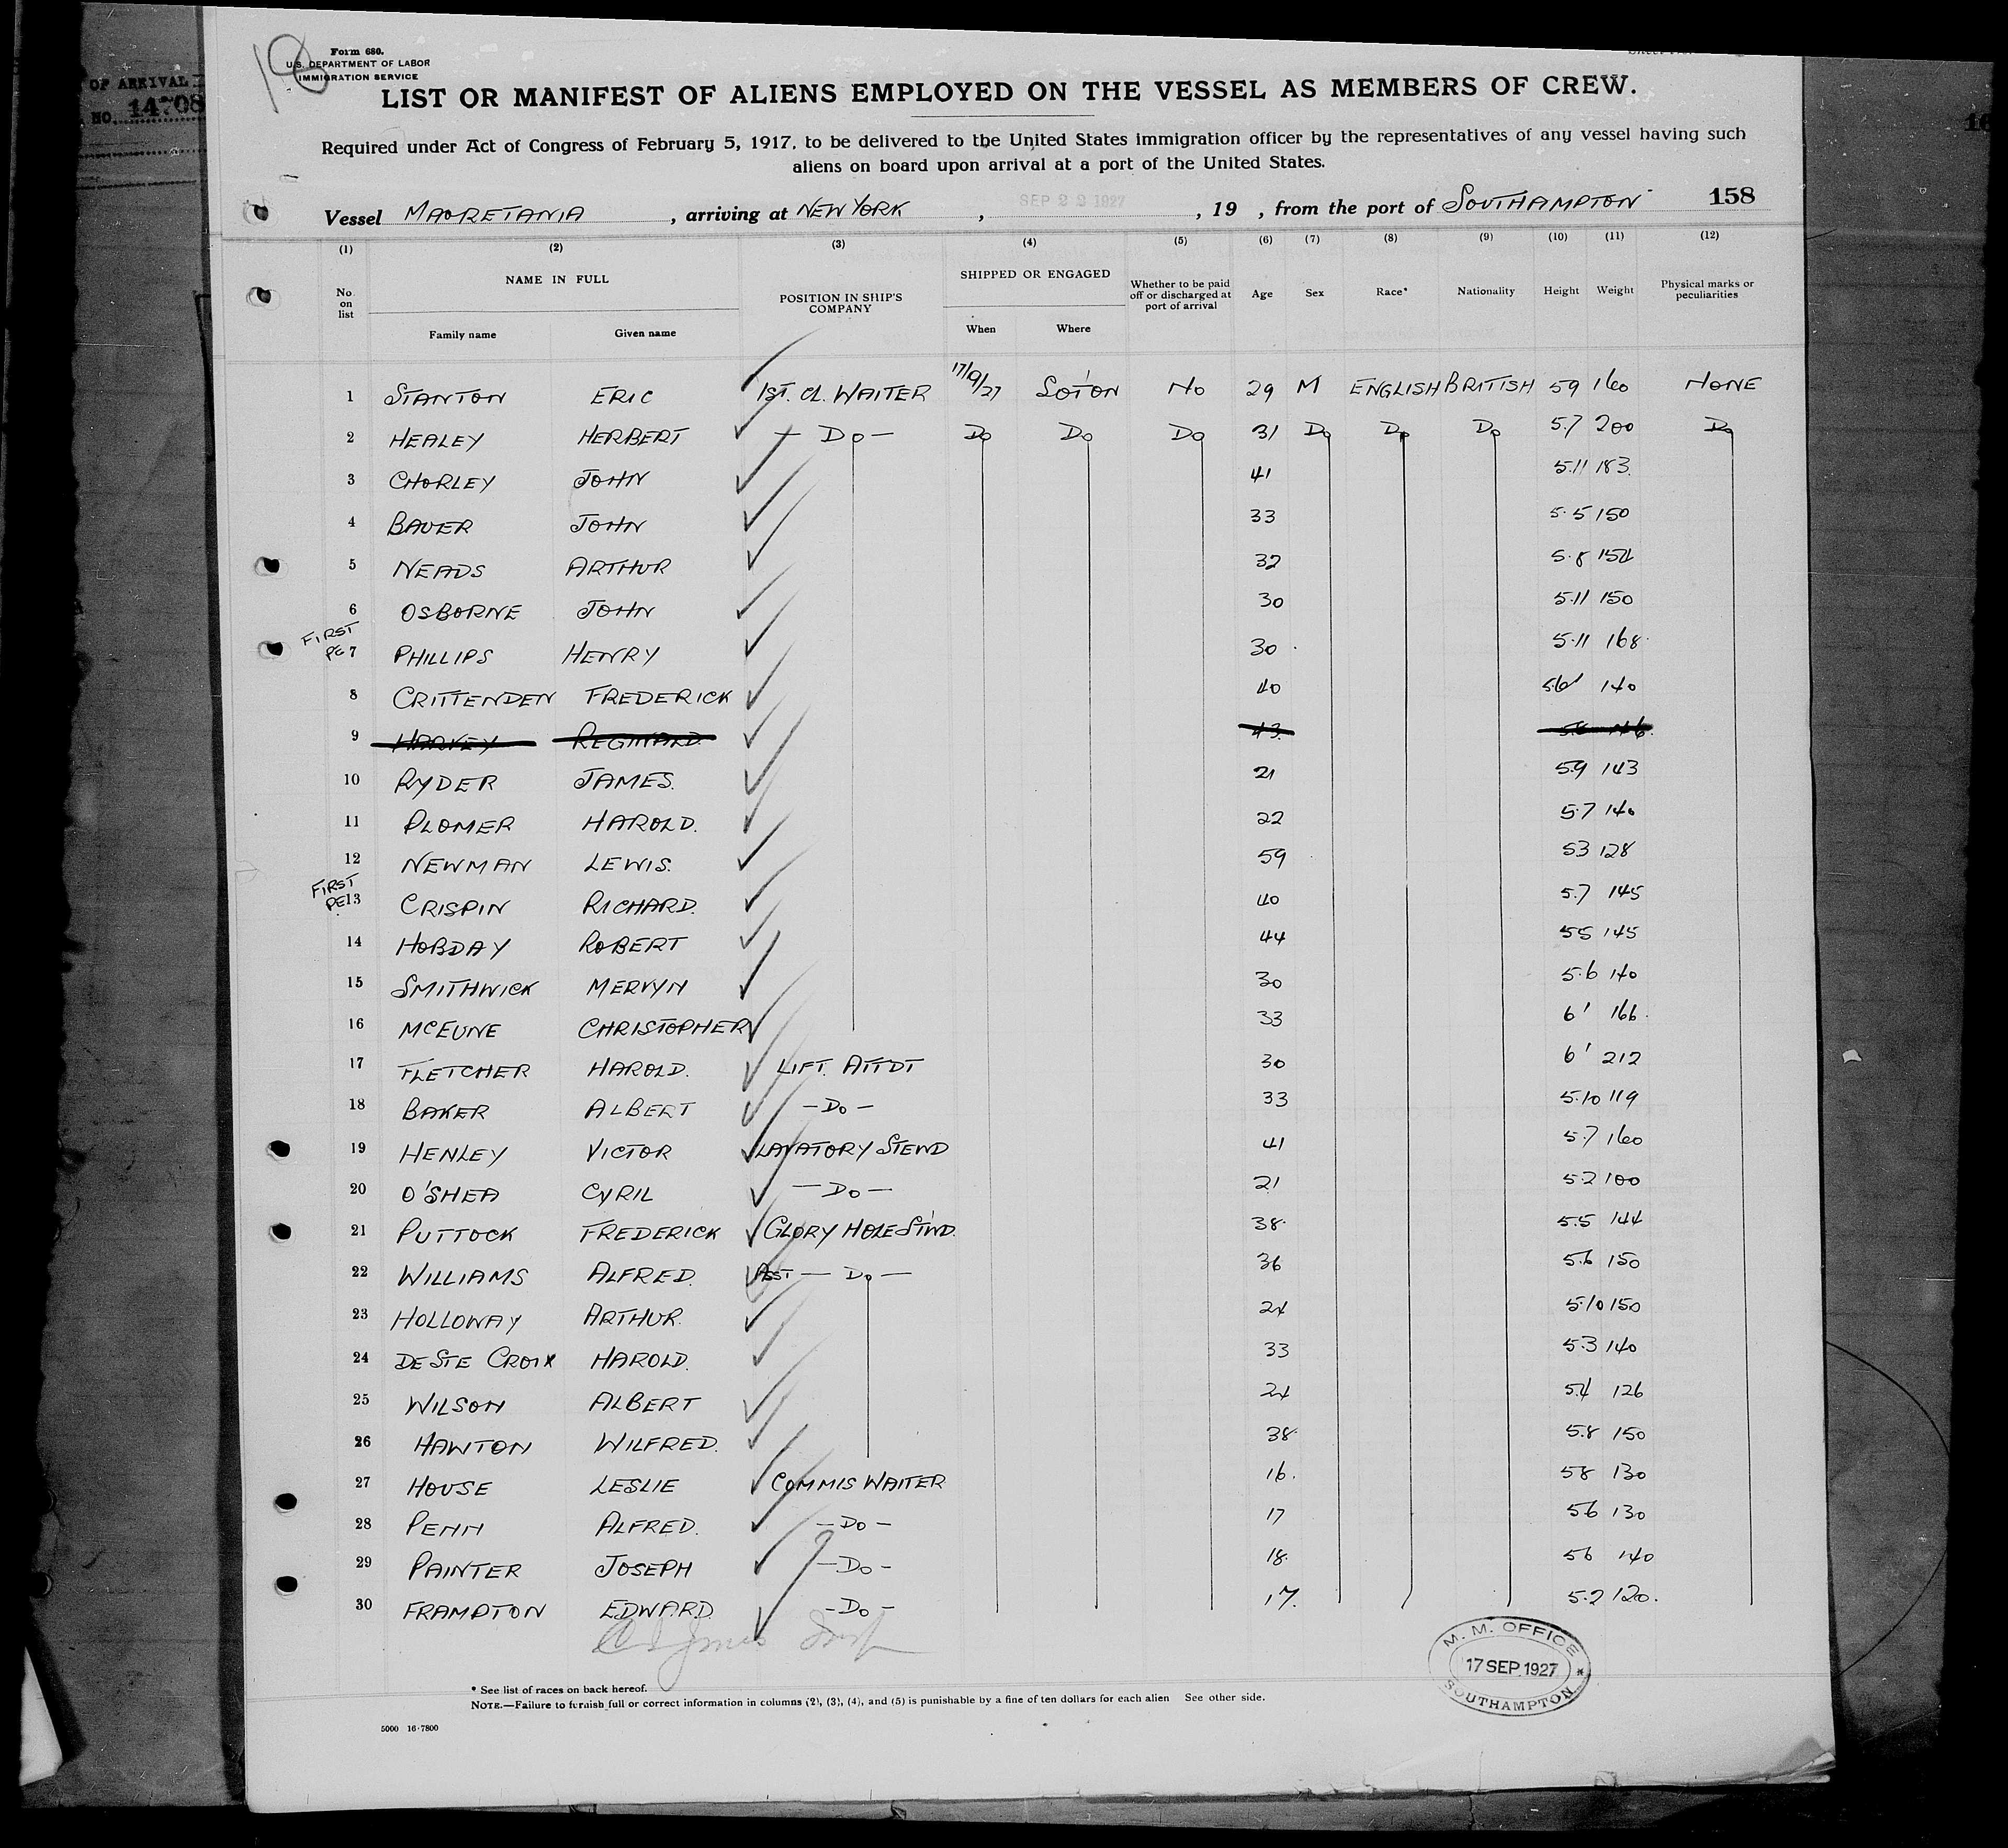 OF ARRIVAL
NO. 14708
18
Form 680.
U.S. DEPARTMENT OF LABOR
IMMIGRATION SERVICE
LIST OR MANIFEST OF ALIENS EMPLOYED ON THE VESSEL AS MEMBERS OF CREW.
Required under Act of Congress of February 5, 1917, to be delivered to the United States immigration officer by the representatives of any vessel having such
aliens on board upon arrival at a port of the United States.
Vessel MAURETANIA, arriving at NEW YORK, SEP 1927, 19 , from the port of SOUTHAMPTON 158
(1) (2) (3) (4) (5) (6) (7) (8) (9) (10) (11) (12)
No on list NAME IN FULL Family name Given name POSITION IN SHIP'S COMPANY SHIPPED OR ENGAGED When Where Whether to be paid off or discharged at port of arrival Age Sex Race* Nationality Height Weight Physical marks or peculiarities
1 STANTON ERIC 1ST. CL. WAITER 17/9/27 SOTON No 29 M ENGLISH BRITISH 59 160 NONE
2 HEALEY HERBERT - Do - Do Do Do 31 Do Do Do 5.7 200 Do
3 CHORLEY JOHN 41 5.11 183
4 BAUER JOHN 33 5.5 150
5 NEADS ARTHUR 32 5.8 154
6 OSBORNE JOHN 30 5.11 150
FIRST
PG 7 PHILLIPS HENRY 30 5.11 168
8 CRITTENDEN FREDERICK 40 5.6 140
9 HARVEY REGINALD. 43 5.6 146.
10 RYDER JAMES. 21 5.9 143
11 PLOMER HAROLD. 22 5.7 140
12 NEWMAN LEWIS. 59 53 128
FIRST
PG 13 CRISPIN RICHARD. 40 5.7 145
14 HOBDAY ROBERT 44 55 145
15 SMITHWICK MERVYN 30 5.6 140
16 McEUNE CHRISTOPHER 33 6' 166.
17 FLETCHER HAROLD. LIFT. ATTDT 30 6' 212
18 BAKER ALBERT - Do - 33 5.10 119
19 HENLEY VICTOR LAVATORY STEWD 41 5.7 160
20 O'SHEA CYRIL - Do - 21 5.2 100
21 PUTTOCK FREDERICK GLORY HOLE STWD. 38 5.5 144
22 WILLIAMS ALFRED. ASST - Do - 36 5.6 150
23 HOLLOWAY ARTHUR. 24 5.10 150
24 DE STE CROIX HAROLD. 33 5.3 140
25 WILSON ALBERT 24 5.4 126
26 HAWTON WILFRED. 38 5.8 150
27 HOUSE LESLIE COMMIS WAITER 16. 58 130
28 PENN ALFRED. - Do - 17 56 130
29 PAINTER JOSEPH - Do - 18. 56 140
30 FRAMPTON EDWARD - Do - 17. 5.2 120.
M. M. OFFICE
17 SEP 1927
SOUTHAMPTON
* See list of races on back hereof.
NOTE.—Failure to furnish full or correct information in columns (2), (3), (4), and (5) is punishable by a fine of ten dollars for each alien See other side.
5000 16-7800